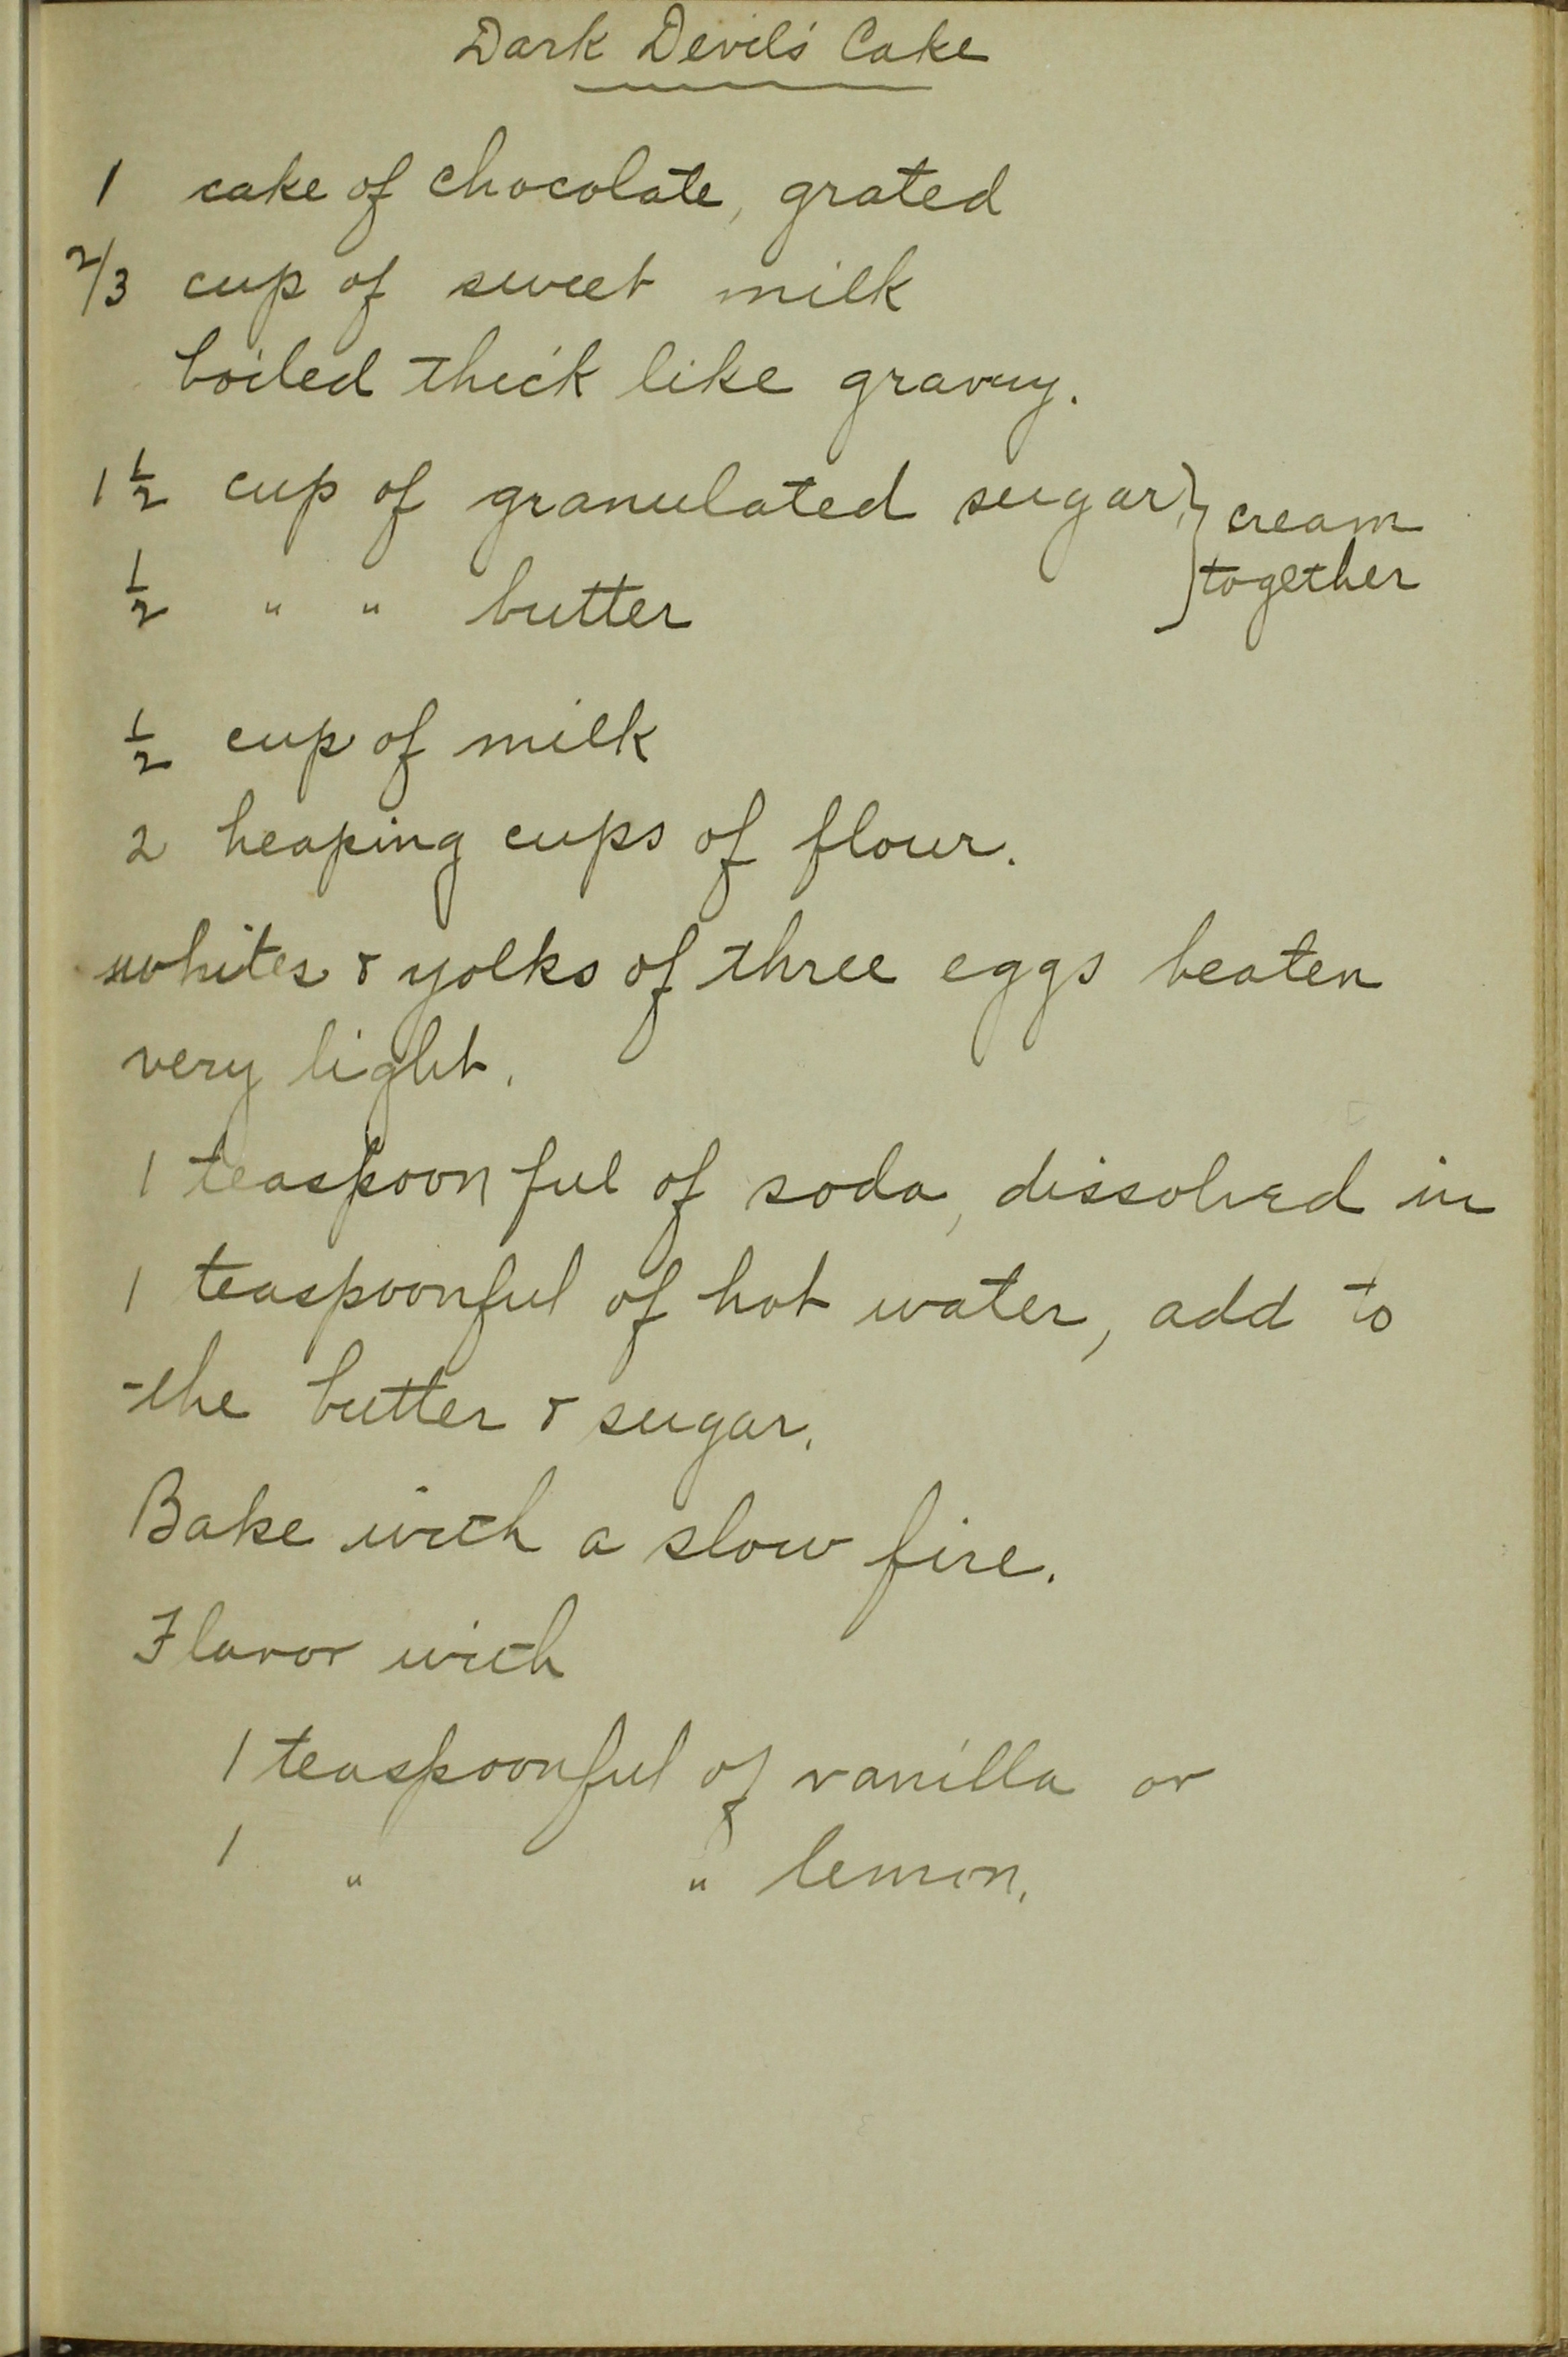 Dark Devil's Cake
1 cake of chocolate, grated
2/3 cup of sweet milk
boiled thick like gravy.
1 1/2 cup of granulated sugar, } cream
1/2 " " butter } together
1/2 cup of milk
2 heaping cups of flour.
whites & yolks of three eggs beaten
very light.
1 teaspoonful of soda, dissolved in
1 teaspoonful of hot water, add to
the butter & sugar.
Bake with a slow fire.
Flavor with
1 teaspoonful of vanilla or
1 " " lemon.